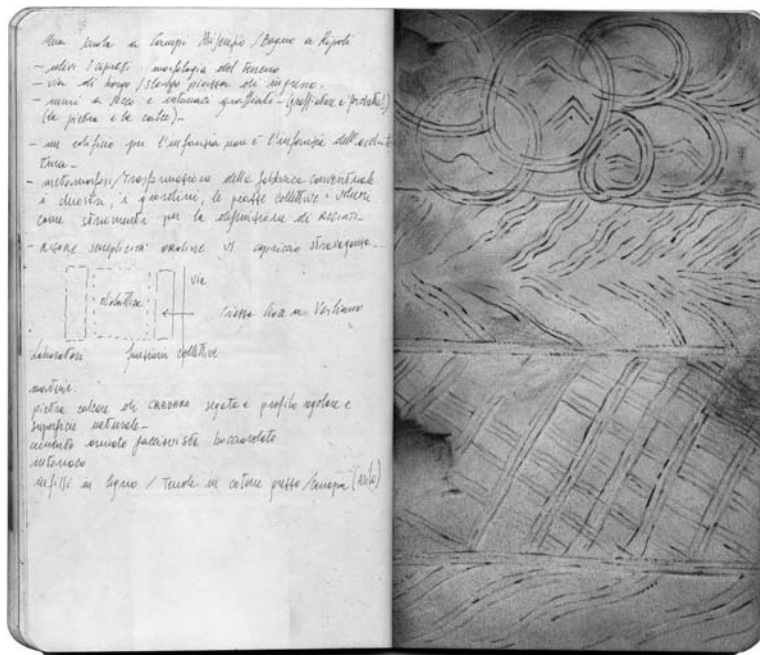 Una scuola a Campi Bisenzio / Bagno a Ripoli
- ulivi / cipressi morfologia del terreno
- via di borgo / slargo piazza di ingresso -
- muri a secco e intonaci graffiati -
(la pietra e la calce) -
- un edificio per l'infanzia non è l'infanzia dell'architet
tura -
- metamorfosi / trasformazione della fabbrica conventuale
i chiostri, i giardini, le piazze collettive i
come strumenti per la definizione di RECINTI -
- RIGORE semplicità ordine VS capriccio stravaganza -
via
didattica
Laboratori funzioni collettive
materiali:
pietra calcare di segato a profilo regolare e
superficie naturale -
cemento armato facciavista bocciardato
intonaco
infissi in legno / tende in cotone grezzo / canapa